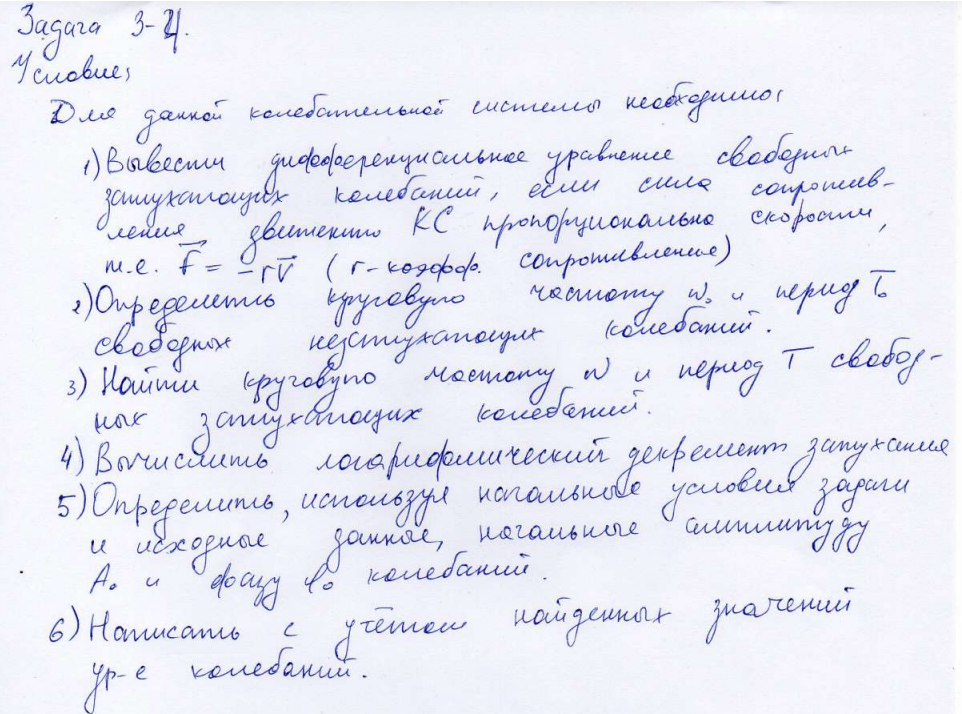 Задача 3-4.
Условие:
Для данной колебательной системы необходимо:
1) Вывести дифференциальное уравнение свободных
затухающих колебаний, если сила сопротив-
ления движению КС пропорциональна скорости,
т.е. F = -rV (r-коэфф. сопротивления)
2) Определить круговую частоту ω₀ и период T₀
свободных незатухающих колебаний.
3) Найти круговую частоту ω и период T свобод-
ных затухающих колебаний.
4) Вычислить логарифмический декремент затухания
5) Определить, используя начальные условия задачи
и исходные данные, начальные амплитуду
A₀ и фазу φ₀ колебаний.
6) Написать с учётом найденных значений
ур-е колебаний.